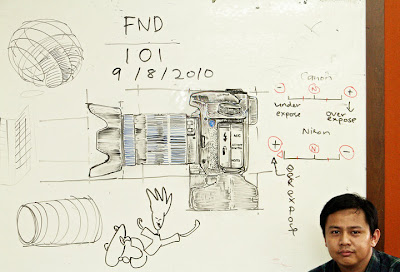 FND
101
9/8/2010
Canon
- N +
under expose
over expose
Nikon
+ N -
over expose